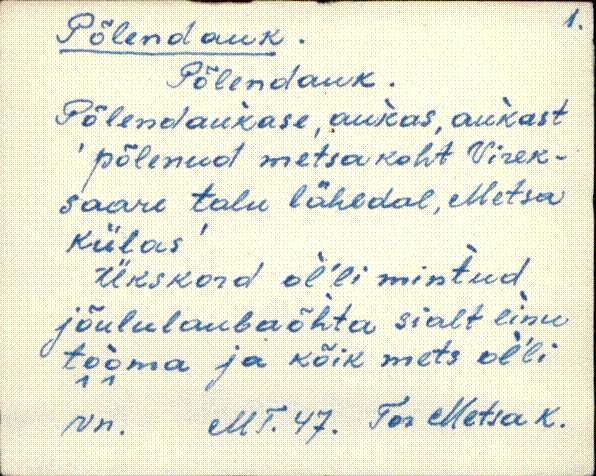 1.
Põlendauk.
Põlendauk.
Põlendauk̀ase, auk̀as, auk̀ast
'põlenud metsakoht Virek-
saare talu lähedal, Metsa
külas'
Ükskord òl'li mint̀ud
jõululaubaõh̀ta sialt èinu
tòòma ja kõik mets òl'li
vn. MT. 47. Tor Metsa k.